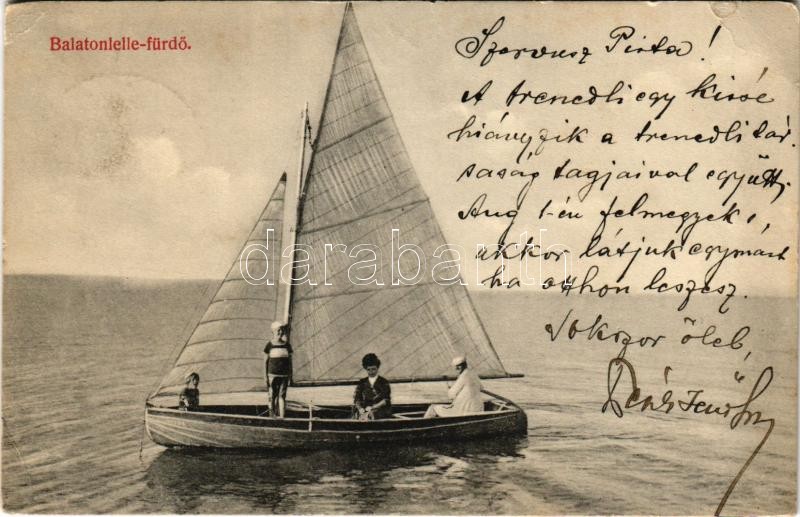 Balatonlelle-fürdő.
Szervusz Pista!
A trenedli egy kissé
hiányzik a trenedli tár-
saság tagjaival együtt.
Aug 1-én felmegyek,
akkor látjuk egymást
ha otthon leszesz.
Sokszor ölel,
darabanth